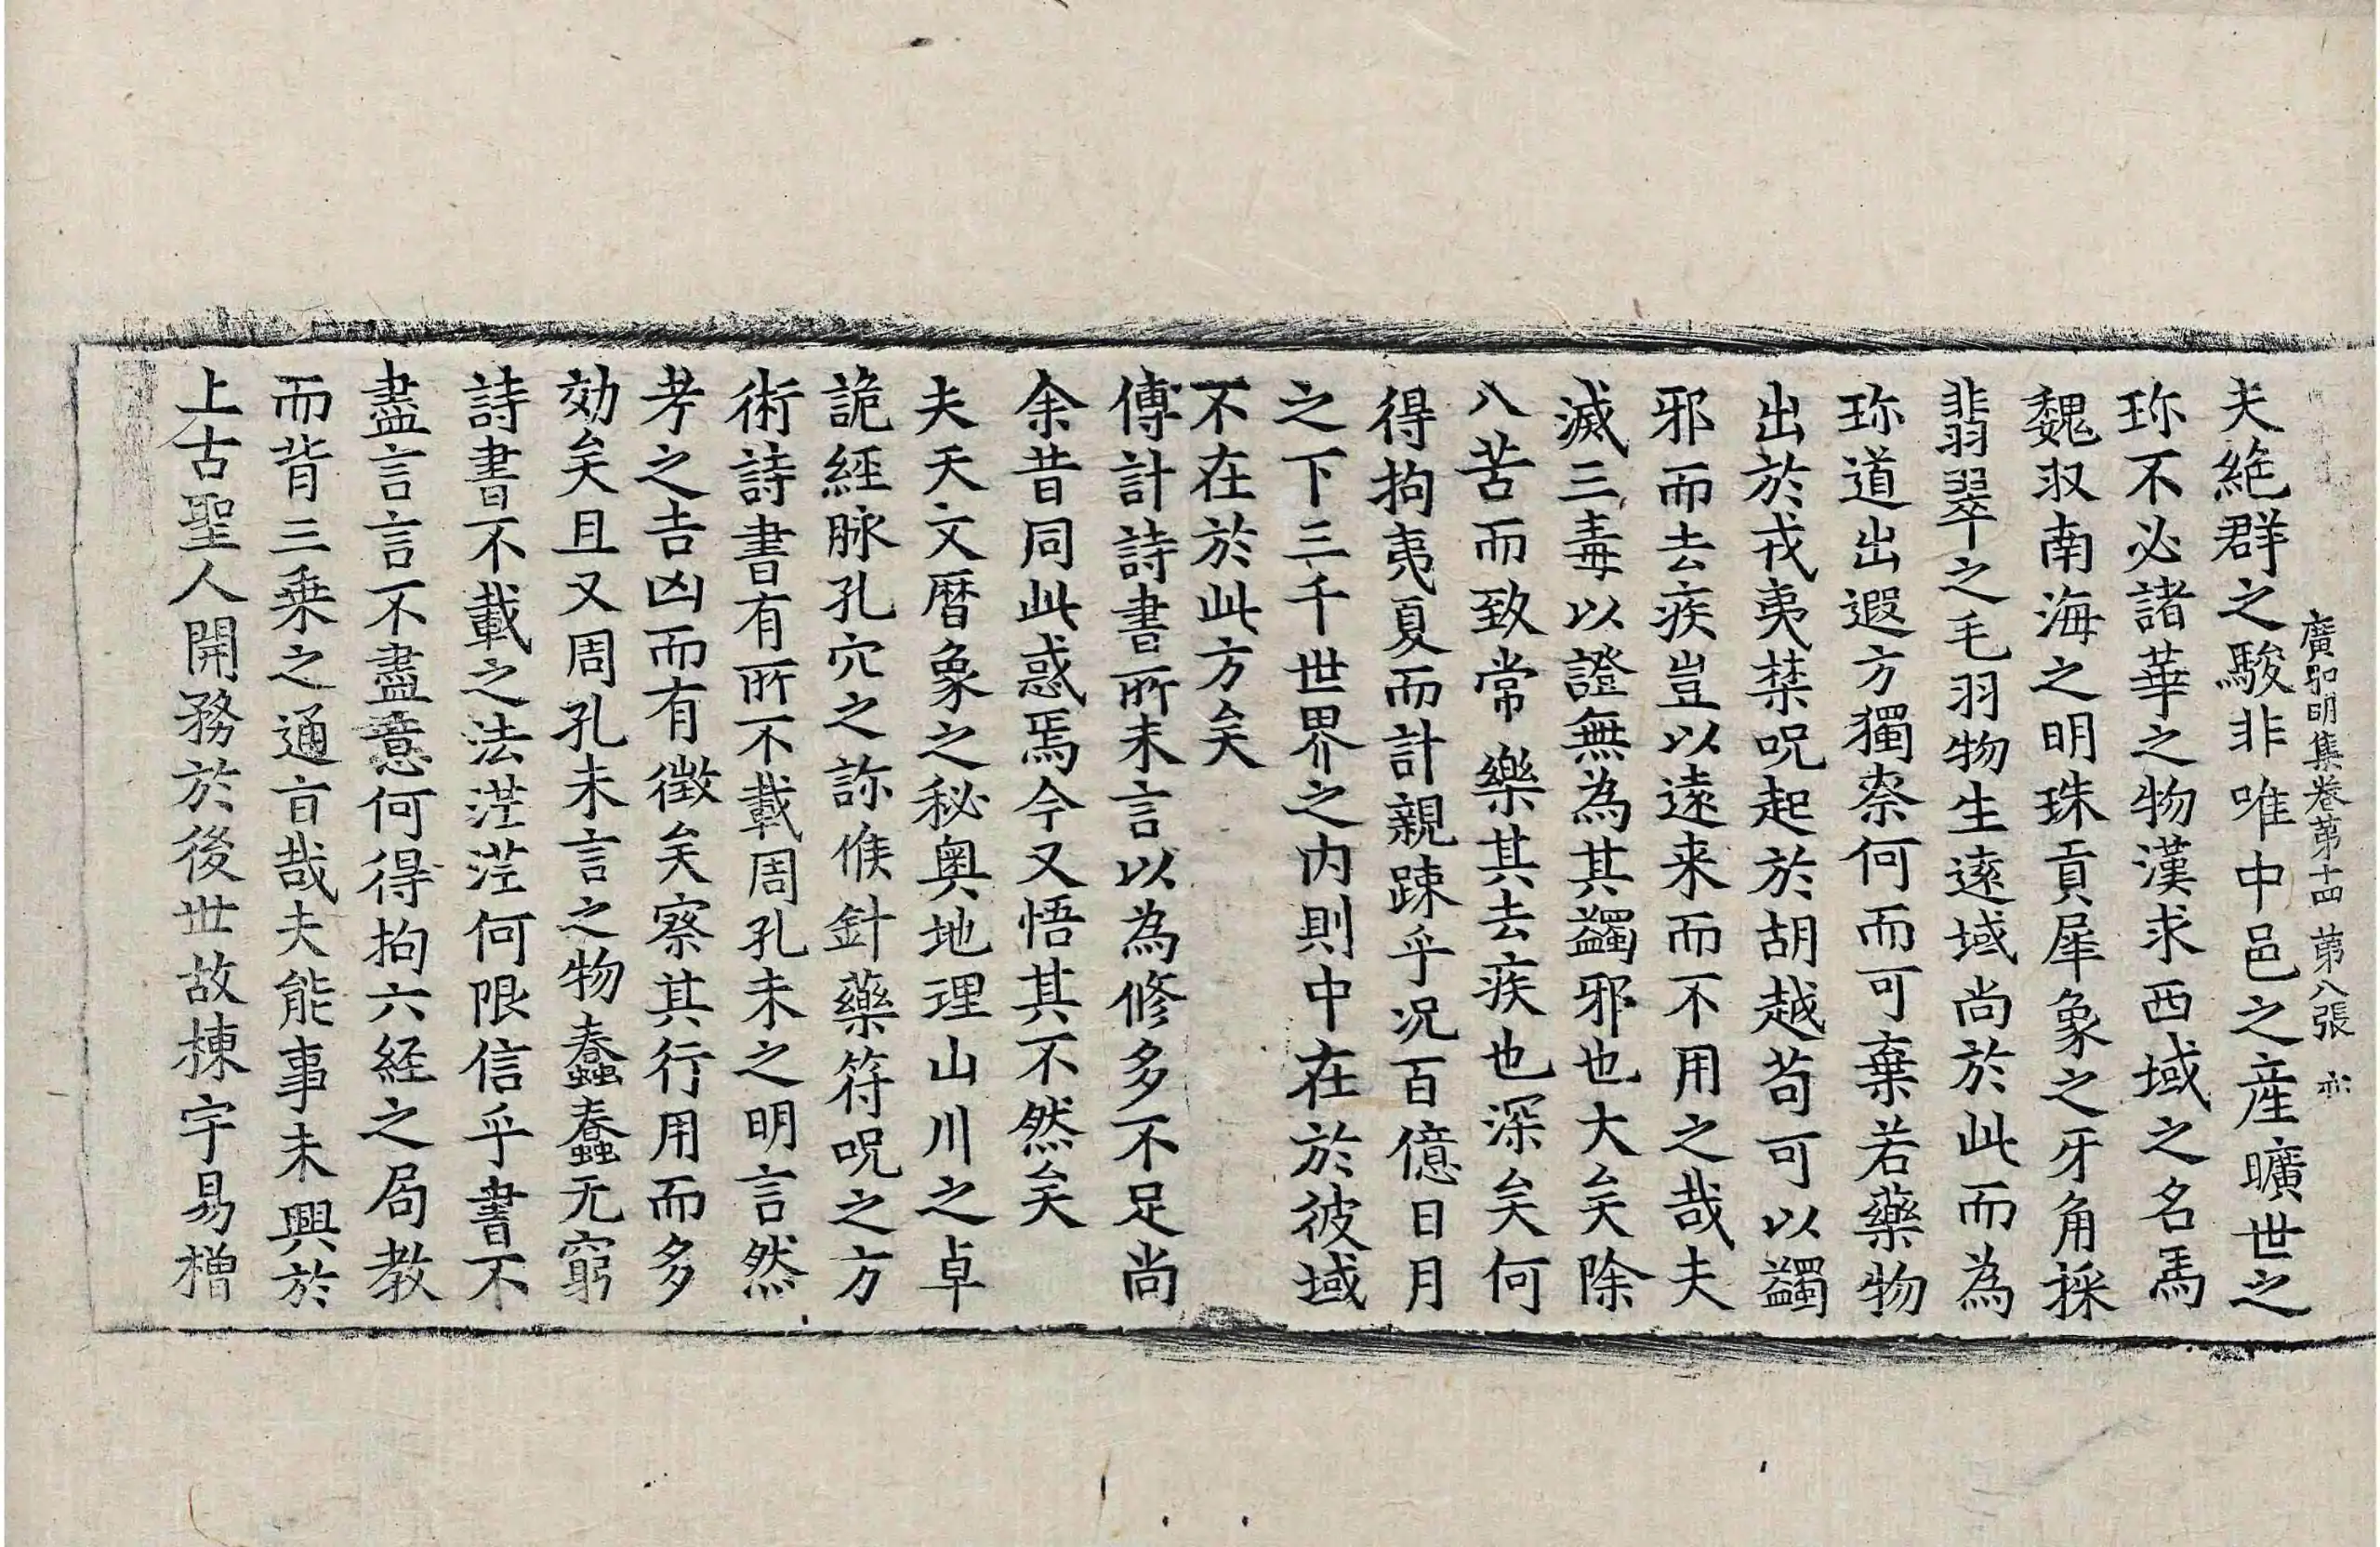 廣弘明集卷第十四 第八張
夫絶群之駿非唯中邑之産曠世之
珎不必諸華之物漢求西域之名馬
魏収南海之明珠貢犀象之牙角採
翡翠之毛羽物生遠域尚於此而為
珎道出遐方獨柰何而可棄若藥物
出於戎夷禁呪起於胡越苟可以蠲
邪而去疾豈以遠来而不用之哉夫
滅三毒以證無為其蠲邪也大矣除
八苦而致常樂其去疾也深矣何
得拘夷夏而計親踈乎况百億日月
之下三千世界之内則中在於彼域
不在於此方矣
傳計詩書所未言以為修多不足尚
余昔同此惑焉今又悟其不然矣
夫天文曆象之秘奥地理山川之卓
詭經脉孔穴之診候針藥符呪之方
術詩書有所不載周孔未之明言然
考之吉凶而有徵矣察其行用而多
効矣且又周孔未言之物蠢蠢无窮
詩書不載之法茫茫何限信乎書不
盡言言不盡意何得拘六経之局教
而背三乗之通旨哉夫能事未興於
上古聖人開務於後世故棟宇易橧